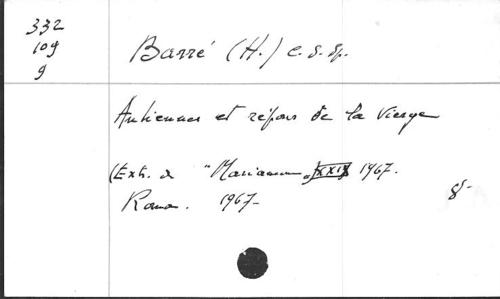 332
109
9
Barré (H.) c. s. sp.
Antiennes et répons de la Vierge
(Extr. de "Marianum" XXIX 1967.
Roma. 1967-
8-